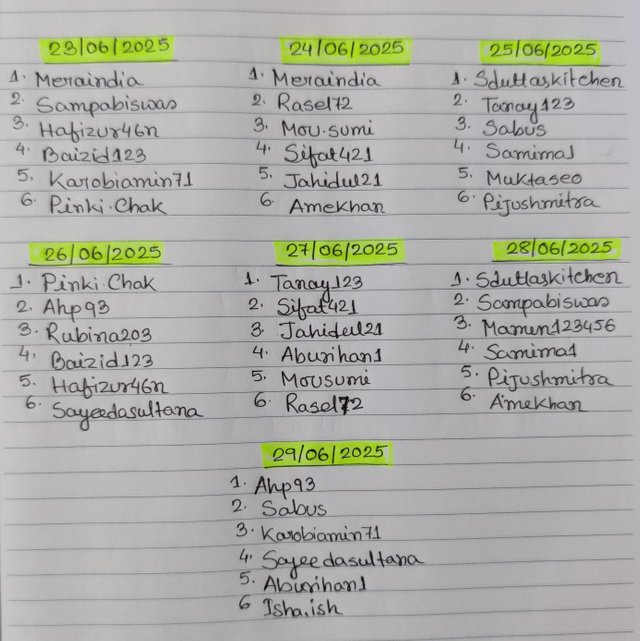 23/06/2025
1. Meraindia
2. Sampabiswas
3. Hafizur46n
4. Baizid123
5. Karobiamin71
6. Pinki.Chak
24/06/2025
1. Meraindia
2. Rasel72
3. Mou.sumi
4. Sifat421
5. Jahidul21
6. Amekhan
25/06/2025
1. Sduttaskitchen
2. Tanay123
3. Sabus
4. Samima1
5. Muktaseo
6. Pijushmitra
26/06/2025
1. Pinki.Chak
2. Ahp93
3. Rubina203
4. Baizid123
5. Hafizur46n
6. Sayeedasultana
27/06/2025
1. Tanay123
2. Sifat421
3. Jahidul21
4. Aburihan1
5. Mousumi
6. Rasel72
28/06/2025
1. Sduttaskitchen
2. Sampabiswas
3. Mamun123456
4. Samima1
5. Pijushmitra
6. Amekhan
29/06/2025
1. Ahp93
2. Sabus
3. Karobiamin71
4. Sayeedasultana
5. Aburihan1
6 Isha.ish